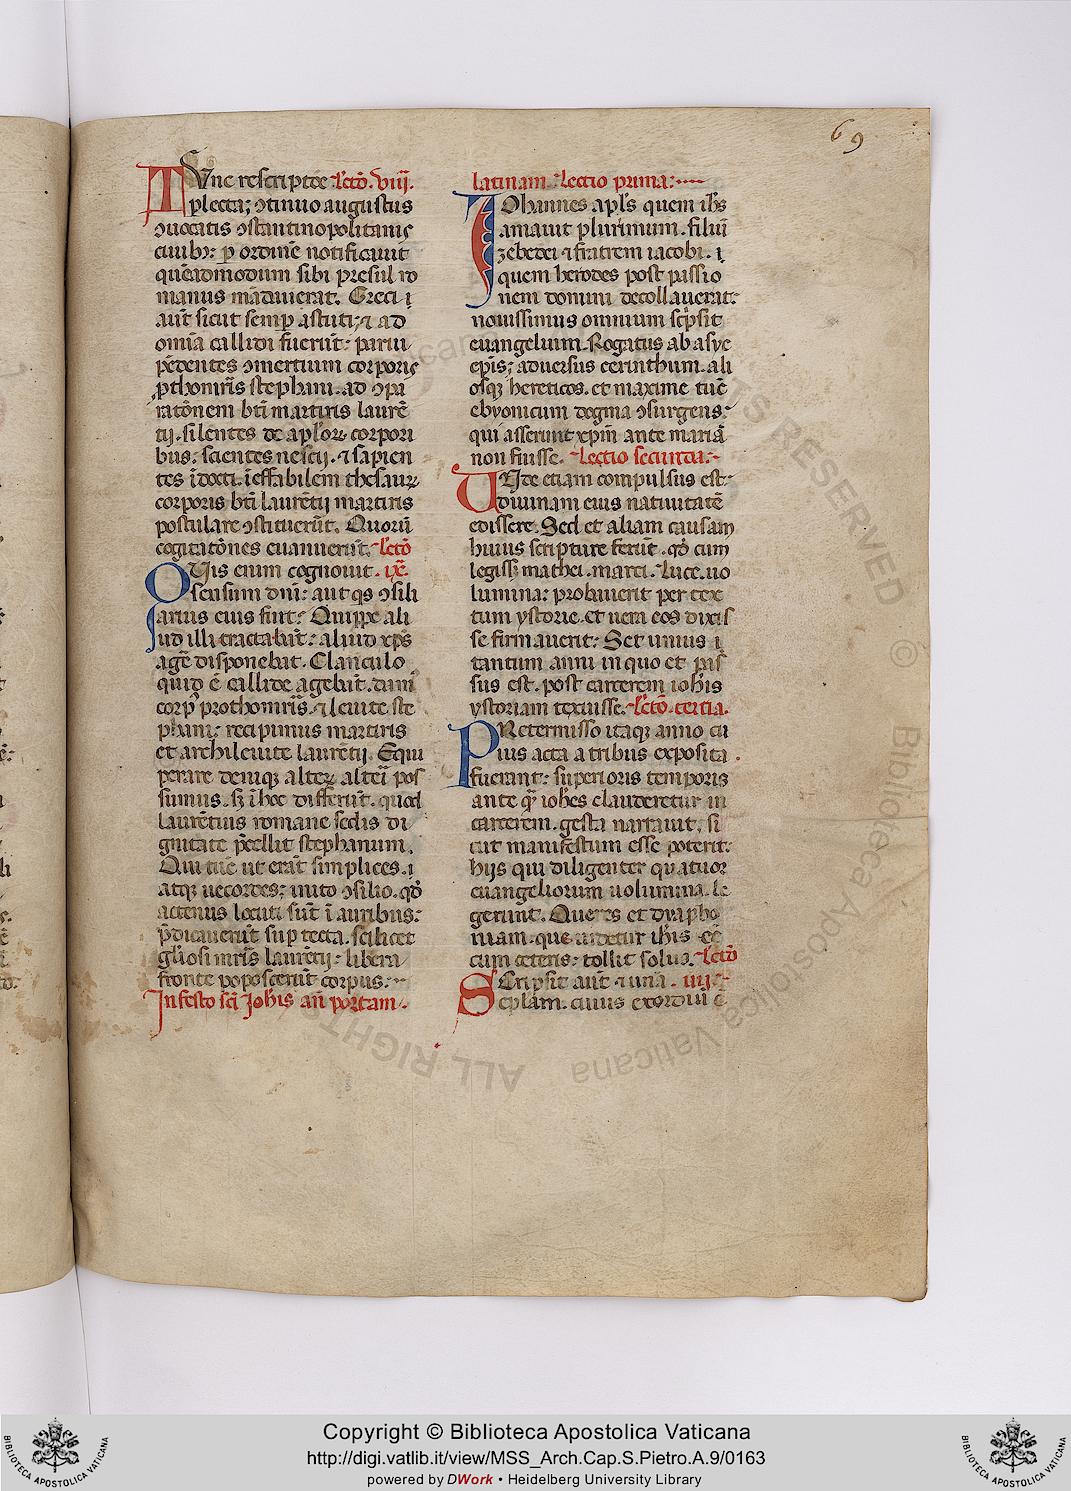 69
TVnc rescripto e Lctō. viij.
plecta; ꝯtinuo augustus
ꝯuocatis ꝯstantinopolitanis
ciuibꝫ: ꝑ ordinē notificauit
quēadmodum sibi presul ro
manus mādauerat. Greci i
aūt sicut semꝑ astuti; ⁊ ad
omīa callidi fuerūt: parui
pēdentes ꝯmertium corporis
ꝓthomr̄is stephani. ad ꝯpa
ratōnem bt̄i martiris laurē
tij. silentes de apl̄oꝝ corpori
bus: scientes nescij. ⁊ sapien
tes īdocti: īeffabilem thesauꝝ
corporis bt̄i laurētij martiris
postulare ꝯstituerūt. Quorū
cogitatōnes euanuerūt. Lectō
QVis enim cognouit. ix̄.
sensum dnī: aut qͥs ꝯsili
arius eius fuit: Quippe ali
ud illi tractabāt: aliud xp̄s
agē disponebat. Clanculo
quid ē callide agebāt. dum
corpꝰ prothomr̄is. ⁊ leuite ste
phani: recipimus martiris
et archileuite laurētij. Equi
perare deniqꝫ alteꝝ alteri pos
sumus. sꝫ ī hoc differūt. quod
laurētius romane sedis di
gnitate p̄cellit stephanum.
Qui tūc ut erāt simplices. i
atqꝫ uecordes; inito ꝯsilio. qd̄
actenus locuti sūt ī auribus:
p̄dicauerūt suꝑ tecta. scilicet
gl̄iosi mr̄is laurētij: libera
fronte poposcerūt corpus:
In festo sc̄i Ioh̄is an̄ portam.
latinam. Lectio prima:
IOhannes apl̄s quem ih̄s
amauit plurimum. filiū
zebedei ⁊ fratrem iacobi. i
quem herodes post passio
nem domini decollauerat:
nouissimus omnium scͥpsit
euangelium. Rogatus ab asye
ep̄is; aduersus cerinthum. ali
osqꝫ hereticos. et maxime tūc
ebyonicum dogma ꝯsurgens:
qui asserunt xp̄m ante mariā
non fuisse. Lectio secunda:
VNde etiam compulsus est:
diuinam eius natiuitatē
edissere. Sed et aliam causam
huius scripture ferūt. qd̄ cum
legisset mathei. marci. Luce. uo
lumina: probauerit per tex
tum ystorie. et uera eos dixis
se firmauerit: Set unius i
tantum anni in quo et pas
sus est. post carcerem ioh̄is
ystoriam texuisse. Lectō. tertia.
PRetermisso itaqꝫ anno cu
ius acta a tribus exposita
fuerant: superioris temporis
ante qͣ ioh̄es clauderetur in
carcerem. gesta narrauit. si
cut manifestum esse poterit:
hijs qui diligenter quatuor
euangeliorum uolumina. le
gerint. Que res et dyapho
niam. que uidetur ioh̄is eē
cum ceteris: tollit solus. Lectō
SCripsit aūt ⁊ una. iiij.
eplām. cuius exordiū ē
Copyright © Biblioteca Apostolica Vaticana
http://digi.vatlib.it/view/MSS_Arch.Cap.S.Pietro.A.9/0163
powered by DWork • Heidelberg University Library
BIBLIOTECA APOSTOLICA VATICANA
BIBLIOTECA APOSTOLICA VATICANA
ALL RIGHTS RESERVED © Biblioteca Apostolica Vaticana